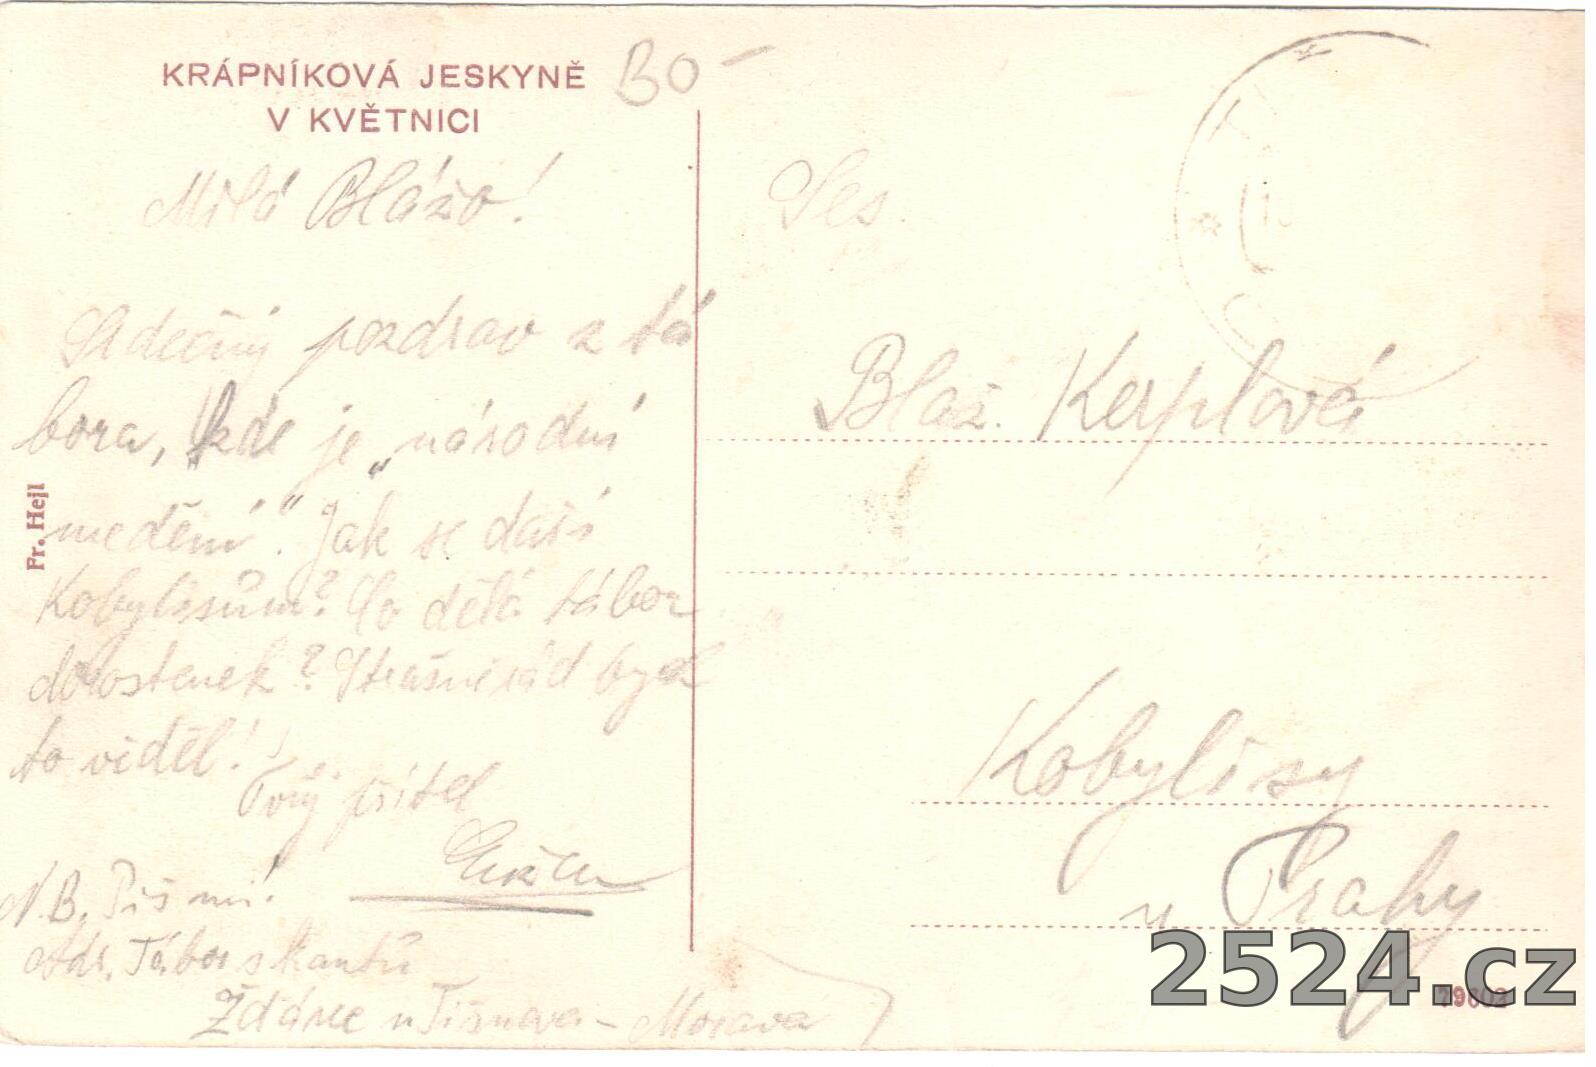 KRÁPNÍKOVÁ JESKYNĚ
V KVĚTNICI
BO-
Milá Blážo!
Srdečný pozdrav z tá
bora, kde je „národní
medění". Jak se daří
Kobylisům? Co dělá tábor
dorostenek? Strašně rád bych
to viděl!
Tvůj přítel
N.B. Piš mi!
Adr. Tábor skautů
Žďárec u Tišnova - Morava
Fr. Hejl
Ses.
Blaž. Kerplová
Kobylisy
u Prahy
2524.cz